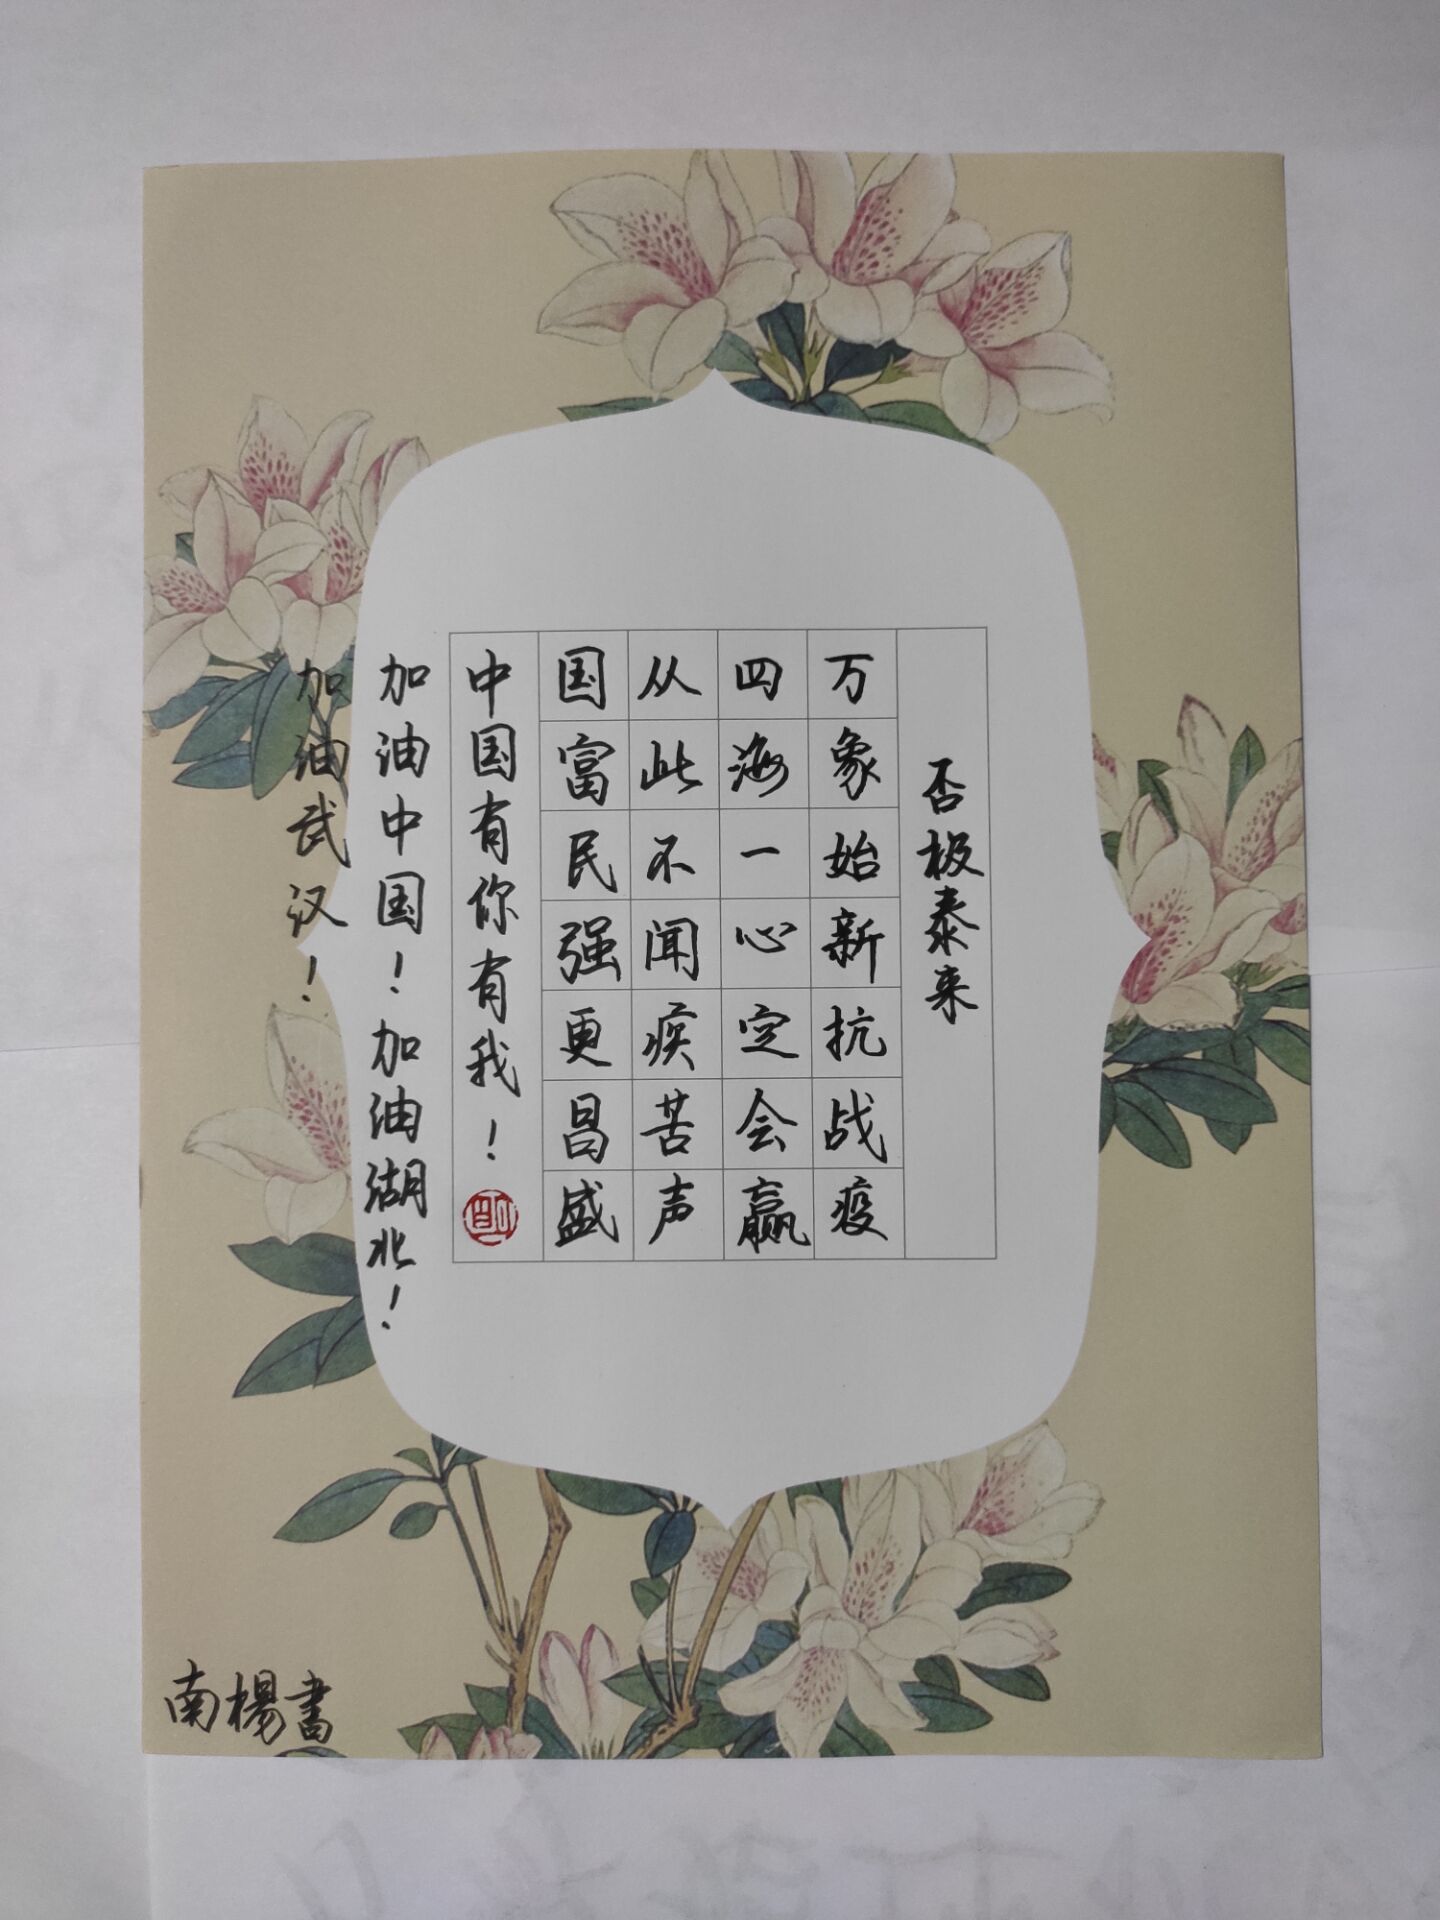 否极泰来
万象始新抗战疫
四海一心定会赢
从此不闻疾苦声
国富民强更昌盛
中国有你有我！
加油中国！加油湖北！
加油武汉！
南楊書